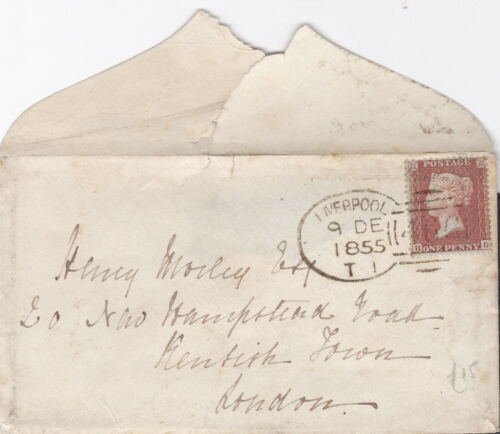 POSTAGE
ONE PENNY
LIVERPOOL
9 DE
1855
T 1
Henry Morley Esq
20 New Hampstead Road
Kentish Town
London
£15